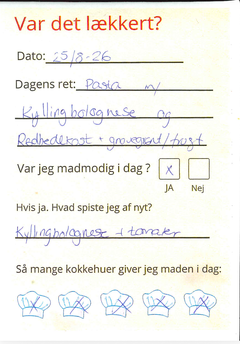 Var det lækkert?
Dato: 25/8-26
Dagens ret: Pasta m/
Kyllingbolognese og
+ grøntsagsret/frugt
Var jeg madmodig i dag? X
JA Nej
Hvis ja. Hvad spiste jeg af nyt?
Kyllingbolognese i tomater
Så mange kokkehuer giver jeg maden i dag:
X X X X X